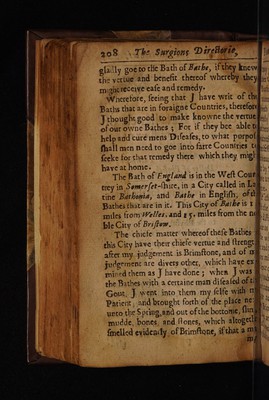 208 The Surgions Directorie,
gladly goe to the Bath of Bathe, if they knew
the vertue and benefit thereof whereby they
might receive ease and remedy.
Wherefore, seeing that J have writ of the
Baths that are in foraigne Countries, therefore
J thought good to make knowne the vertue
of our owne Bathes; For if they bee able to
help and cure mens Diseases, to what
shall men need to goe into farre Countries
seeke for that remedy there which they
have at home.
The Bath of England is in the West
trey in Somerset-shire, in a City called in
tine Bathonia, and Bathe in English, of
Bathes that are in it. This City of Bathe is
miles from Welles. and 15. miles from the
ble City of Bristow.
The chiefe matter whereof these Bathes
this City have their chiefe vertue and
after my judgement is Brimstone, and of
judgement are divers other, which have
mined them as J have done; when J was
the Bathes with a certaine man diseased of
Gout, J went into them my selfe with
Patient, and brought forth of the place
unto the Spring, and out of the bottome,
mudde, bones, and stones, which
smelled evidently of Brimstone, if that a